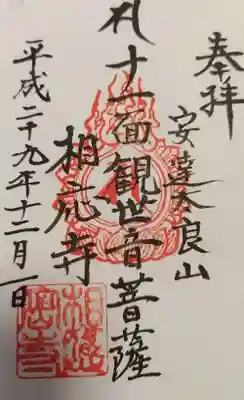 奉拝
安達太良山
札十一面観世音菩薩
相応寺
平成二十九年十二月一日
相應寺